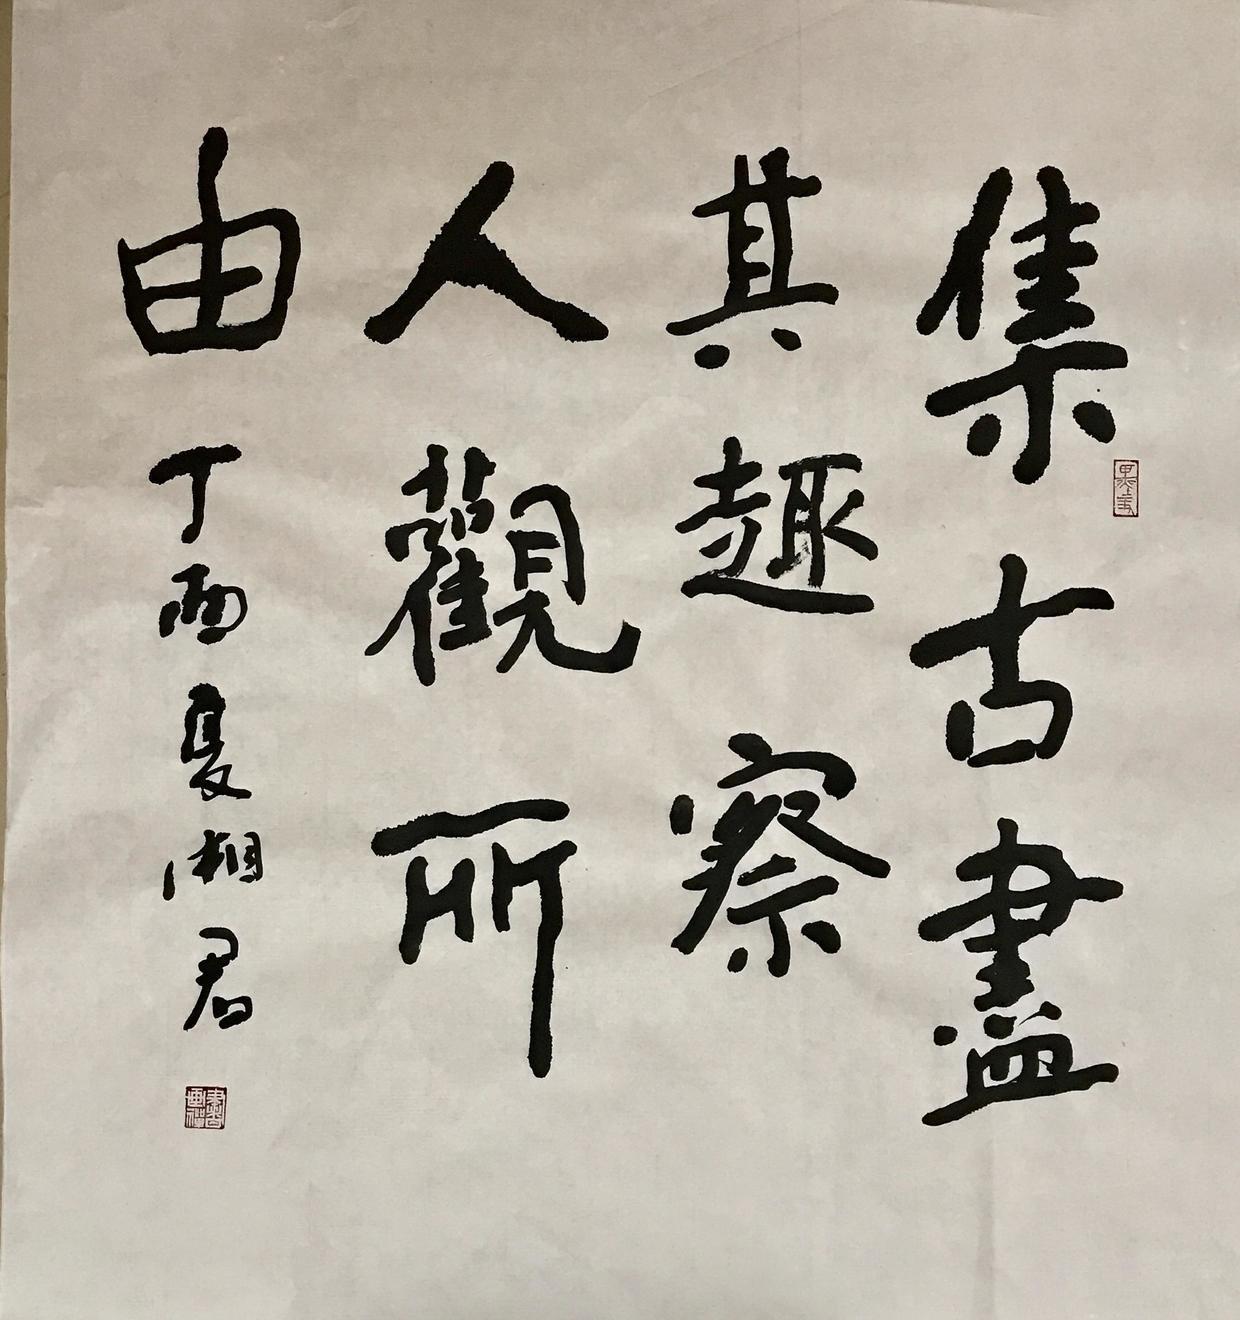 集古盡
其趣察
人觀所
由 丁酉夏湘君